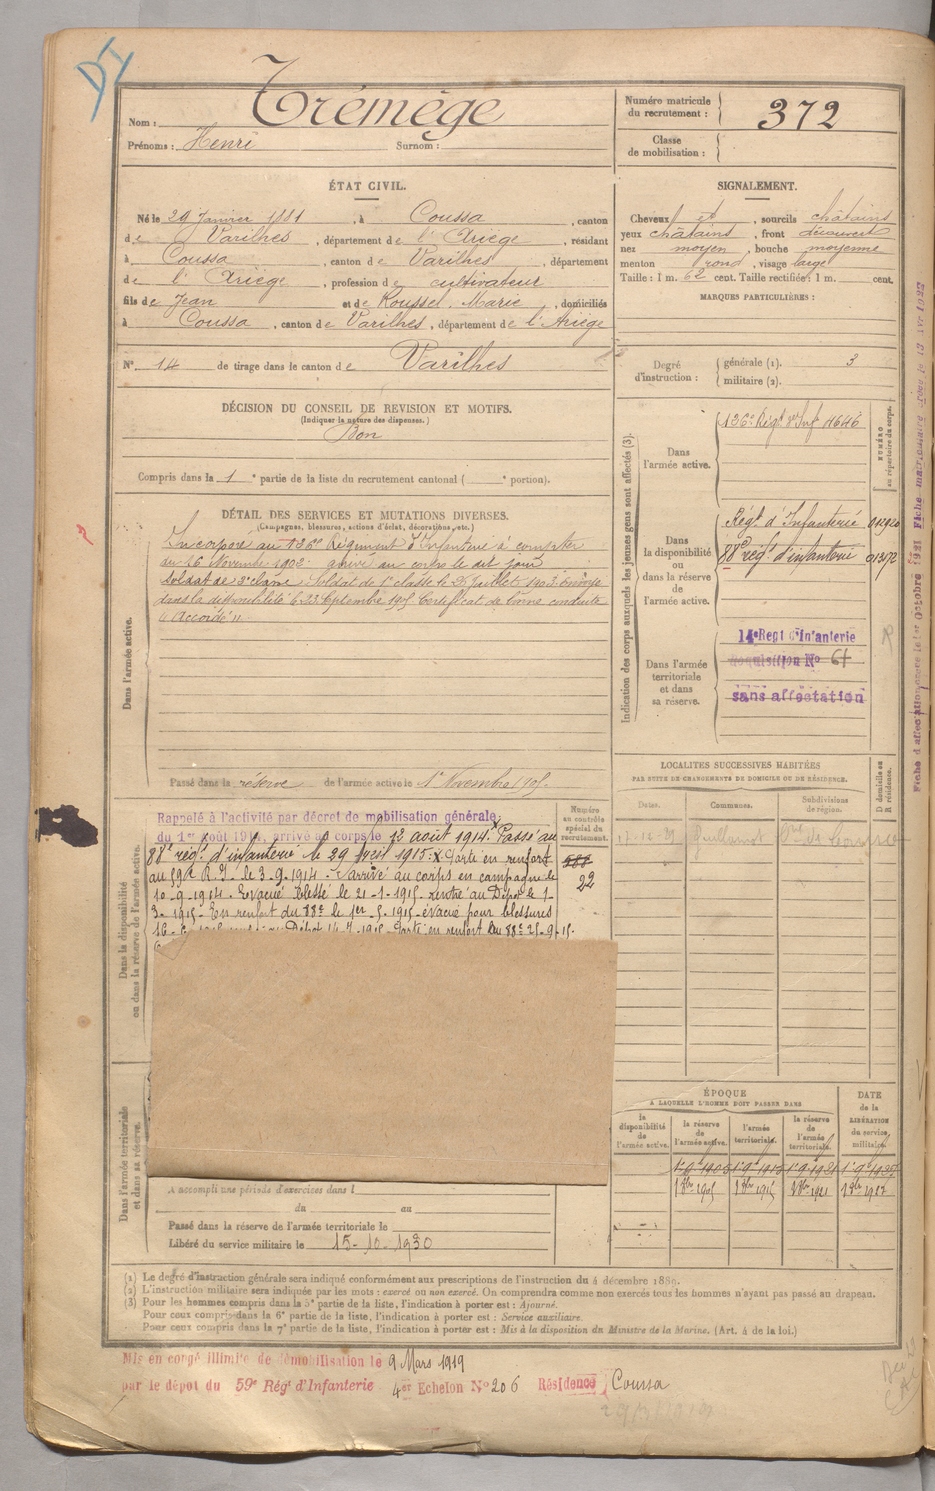 DJ
Nom : Trémège
Prénoms : Henri Surnom :
Numéro matricule du recrutement : 372
Classe de mobilisation :
ÉTAT CIVIL.
Né le 29 Janvier 1881, à Coussa, canton
de Varilhes, département de l'Ariège, résidant
à Coussa, canton de Varilhes, département
de l'Ariège, profession de cultivateur
fils de Jean et de Roussel, Marie, domiciliés
à Coussa, canton de Varilhes, département de l'Ariège
N° 14 de tirage dans le canton de Varilhes
DÉCISION DU CONSEIL DE REVISION ET MOTIFS.
(Indiquer la nature des dispenses.)
Bon
Compris dans la 1e partie de la liste du recrutement cantonal ( e portion).
SIGNALEMENT.
Cheveux et, sourcils châtains
yeux châtains, front découvert
nez moyen, bouche moyenne
menton rond, visage large
Taille : 1 m. 62 cent. Taille rectifiée : 1 m. cent.
MARQUES PARTICULIÈRES :
Degré d'instruction :
générale (1). 3
militaire (2).
DÉTAIL DES SERVICES ET MUTATIONS DIVERSES.
(Campagnes, blessures, actions d'éclat, décorations, etc.)
Dans l'armée active.
Incorporé au 136e Régiment d'Infanterie à compter
du 16 Novembre 1902. arrivé au corps le dit jour
Soldat de 2e classe. Soldat de 1e classe le Juillet 1903. Envoyé
dans la disponibilité le 23 Septembre 1905 Certificat de bonne conduite
"Accordé".
Passé dans la réserve de l'armée active le 1er Novembre 1905.
Indication des corps auxquels les jeunes gens sont affectés (3).
NUMÉRO au répertoire du corps.
Dans l'armée active.
136e Régt d'Inf 4646
Dans la disponibilité ou dans la réserve de l'armée active.
Régt d'Infanterie
88e régt d'infanterie
Dans l'armée territoriale et dans sa réserve.
14e Regt d'Infanterie
N° 61
sans affectation
Fiche matriculaire
Octobre 1921
LOCALITÉS SUCCESSIVES HABITÉES
PAR SUITE DE CHANGEMENTS DE DOMICILE OU DE RÉSIDENCE.
Dates.
Communes.
Subdivisions de région.
D domicile ou R résidence.
Dans la disponibilité ou dans la réserve de l'armée active.
Numéro en contrôle spécial du recrutement.
22
Rappelé à l'activité par décret de mobilisation générale
du 1er août 1914, arrivé au corps le 12 août 1914. Passé au
88e régt d'infanterie le 29 avril 1915. x Parti en renfort
au 59e R.I. le 3.9.1914. arrivé au corps en campagne le
10-9-1914. Evacué blessé le 21-1-1915 rentré au Dépôt le 1-
3-1915. En renfort du 88e le 1er-5-1915 évacué pour blessures
Dépôt 1915. Parti en renfort du 88e 25-9-15.
Dans l'armée territoriale et dans sa réserve.
A accompli une période d'exercices dans l
du au
Passé dans la réserve de l'armée territoriale le
Libéré du service militaire le 15-10-1930
ÉPOQUE
A LAQUELLE L'HOMME DOIT PASSER DANS
la disponibilité de l'armée active.
la réserve de l'armée active.
l'armée territoriale.
la réserve de l'armée territoriale.
DATE de la LIBÉRATION du service militaire.
1er 9bre 1905
(1) Le degré d'instruction générale sera indiqué conformément aux prescriptions de l'instruction du 4 décembre 1889.
(2) L'instruction militaire sera indiquée par les mots : exercé ou non exercé. On comprendra comme non exercés tous les hommes n'ayant pas passé au drapeau.
(3) Pour les hommes compris dans la 5e partie de la liste, l'indication à porter est : Ajourné.
Pour ceux compris dans la 6e partie de la liste, l'indication à porter est : Service auxiliaire.
Pour ceux compris dans la 7e partie de la liste, l'indication à porter est : Mis à la disposition du Ministre de la Marine. (Art. 4 de la loi.)
Mis en congé illimité de démobilisation le 9 Mars 1919
par le dépot du 59e Régt d'Infanterie 4er Echelon N° 206 Résidence Coussa